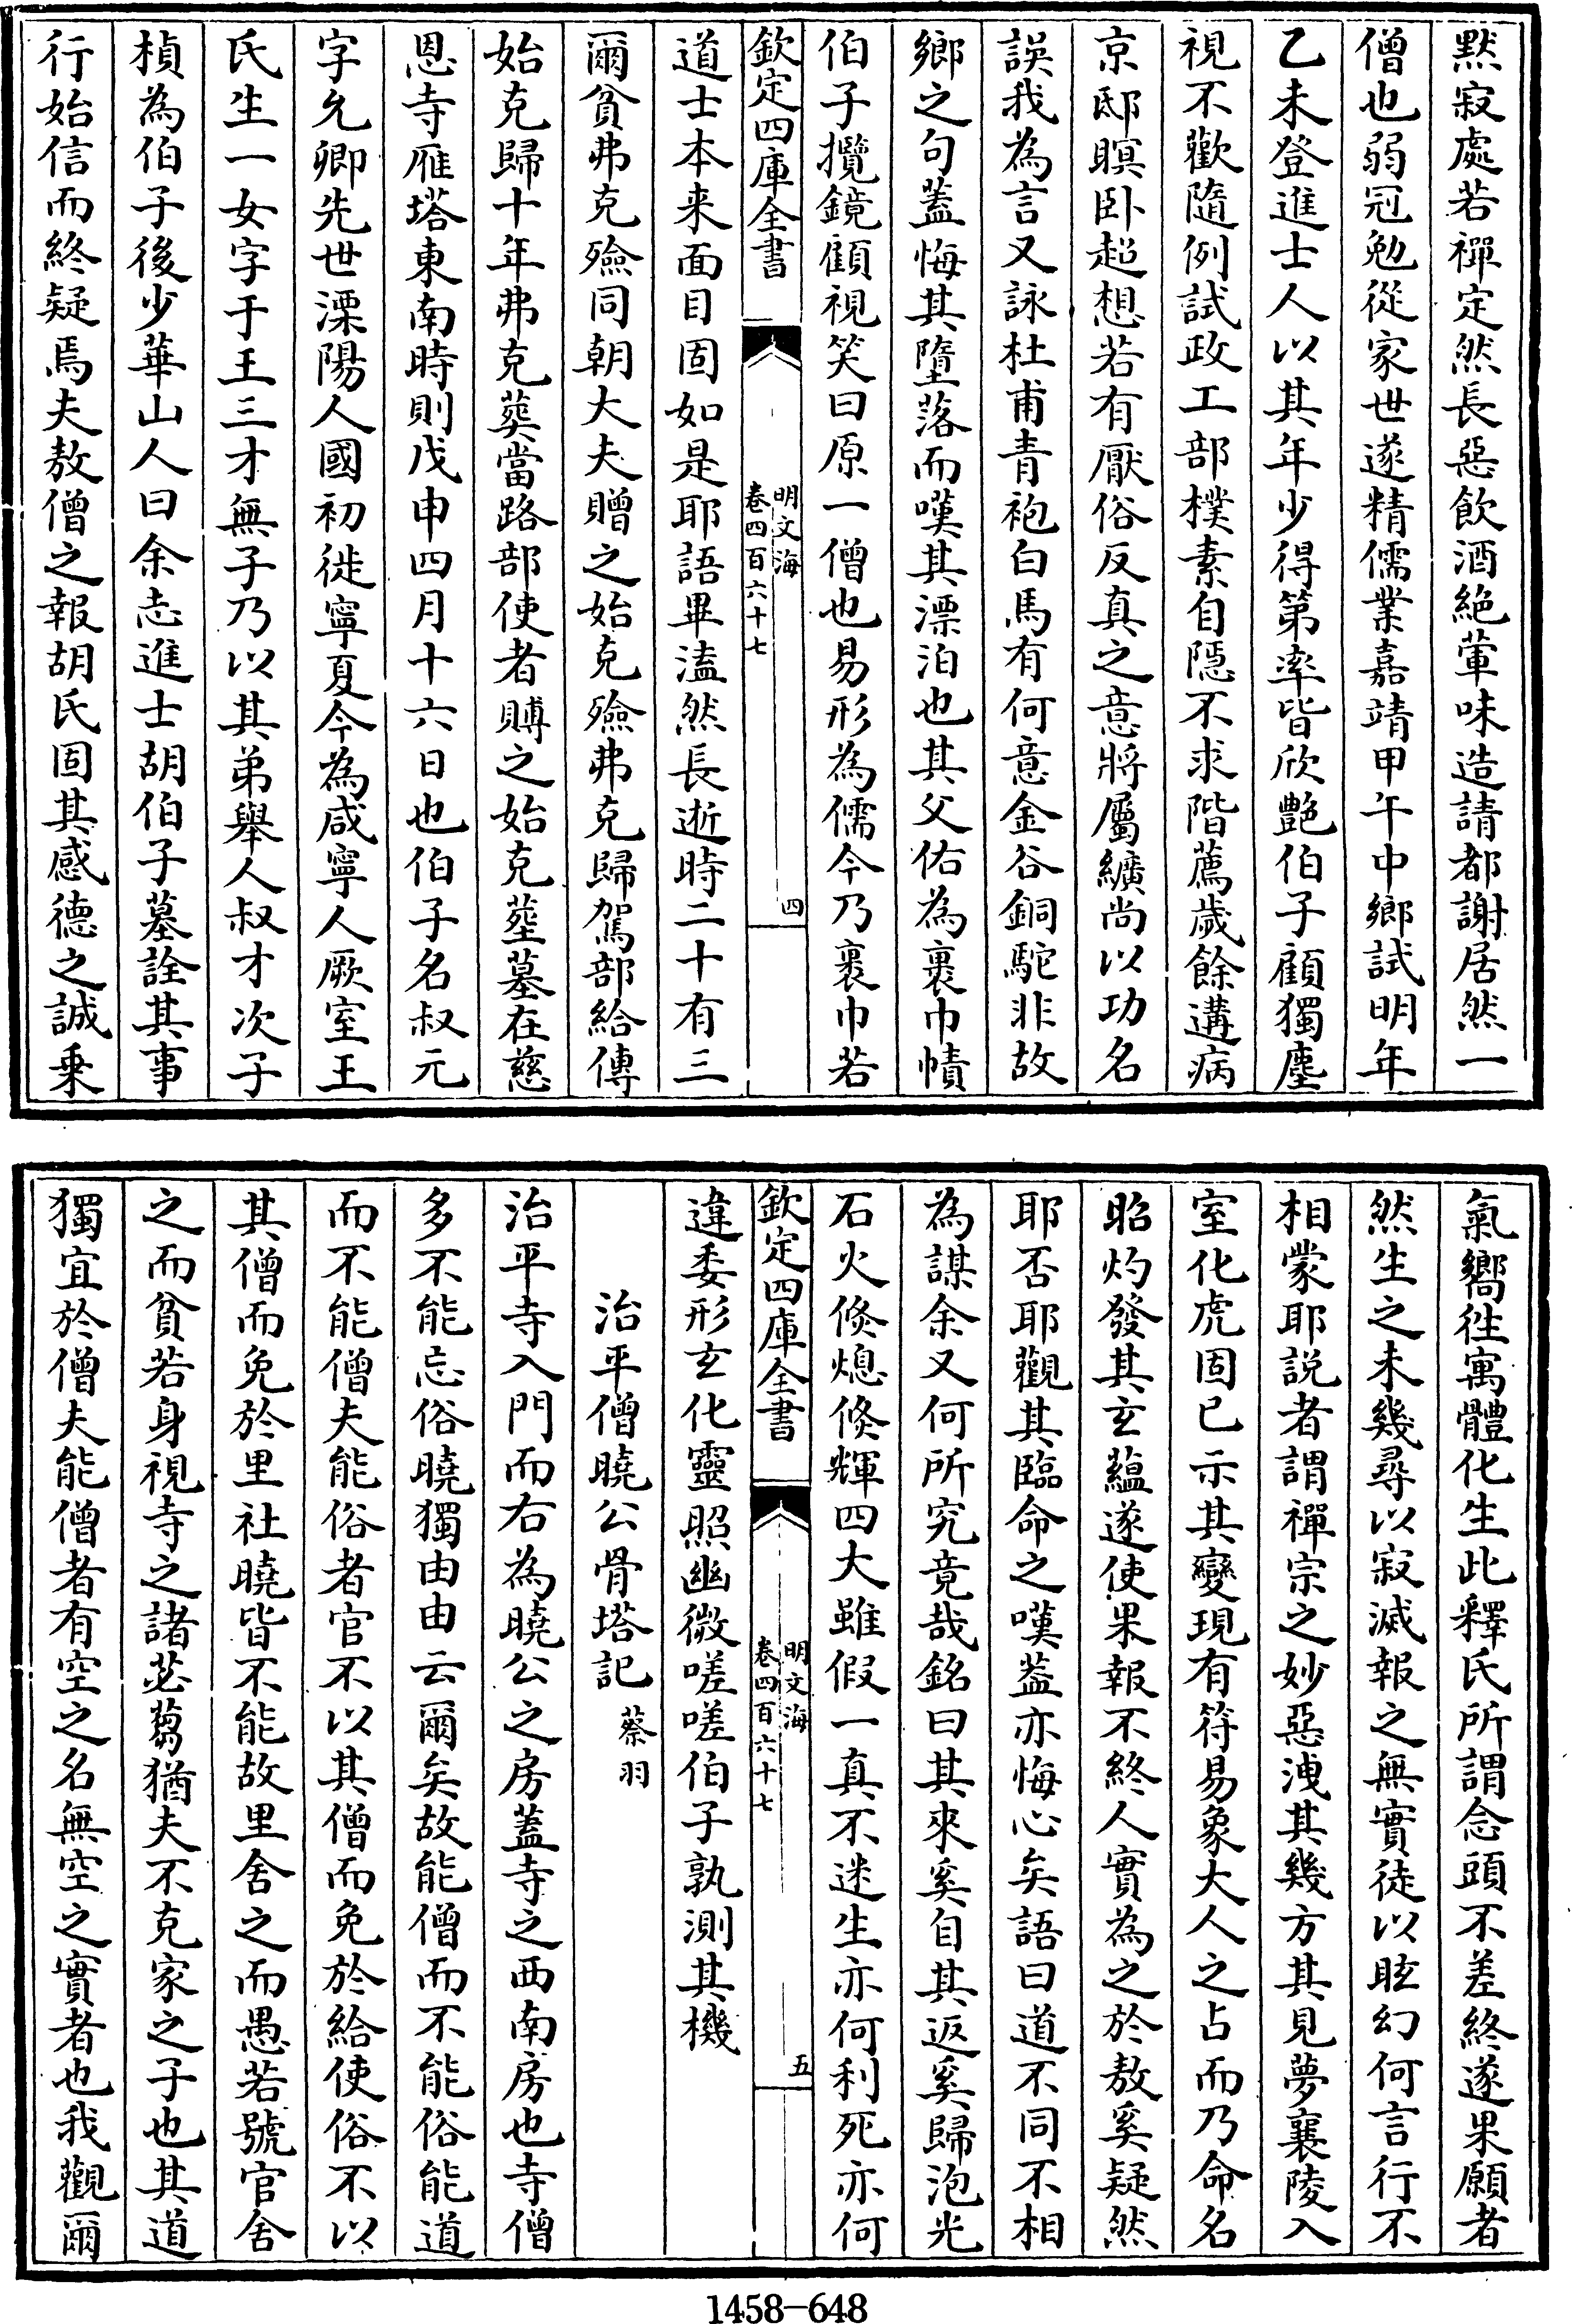 黙寂處若禪定然長惡飲酒絶葷味造請都謝居然一
僧也弱冠勉從家世遂精儒業嘉靖甲午中鄉試明年
乙未登進士人以其年少得第率皆欣艷伯子顧獨塵
視不歡隨例試政工部樸素自隠不求階薦歲餘遘病
京邸瞑卧超想若有厭俗反真之意將屬纊尚以功名
誤我為言又詠杜甫青袍白馬有何意金谷銅駝非故
鄉之句蓋悔其墮落而嘆其漂泊也其父佑為裹巾幘
伯子攬鏡顧視笑曰原一僧也易形為儒今乃裹巾若
欽定四庫全書
明文海
卷四百六十七
四
道士本来面目固如是耶語畢溘然長逝時二十有三
爾貧弗克殮同朝大夫贈之始克殮弗克歸駕部給傳
始克歸十年弗克葬當路部使者賻之始克塟墓在慈
恩寺雁塔東南時則戊申四月十六日也伯子名叔元
字允卿先世溧陽人國初徙寧夏今為咸寧人厥室王
氏生一女字于王三才無子乃以其弟舉人叔才次子
楨為伯子後少華山人曰余志進士胡伯子墓詮其事
行始信而終疑焉夫敖僧之報胡氏固其感德之誠乗
氣嚮徃寓體化生此釋氏所謂念頭不差終遂果願者
然生之未幾尋以寂滅報之無實徒以眩幻何言行不
相蒙耶説者謂禪宗之妙惡洩其幾方其見夢襄陵入
室化虎固已示其變現有符易象大人之占而乃命名
昭灼發其玄蘊遂使果報不終人實為之於敖奚疑然
耶否耶觀其臨命之嘆葢亦悔心矣語曰道不同不相
為謀余又何所究竟哉銘曰其來奚自其返奚歸泡光
石火倏熄倏輝四大雖假一真不迷生亦何利死亦何
欽定四庫全書
明文海
卷四百六十七
五
違委形玄化靈照幽微嗟嗟伯子孰測其機
治平僧曉公骨塔記 蔡羽
治平寺入門而右為曉公之房蓋寺之西南房也寺僧
多不能忘俗曉獨由由云爾矣故能僧而不能俗能道
而不能僧夫能俗者官不以其僧而免於給使俗不以
其僧而免於里社曉皆不能故里舍之而愚若號官舍
之而貧若身視寺之諸苾蒭猶夫不克家之子也其道
獨宜於僧夫能僧者有空之名無空之實者也我觀爾
1458-648